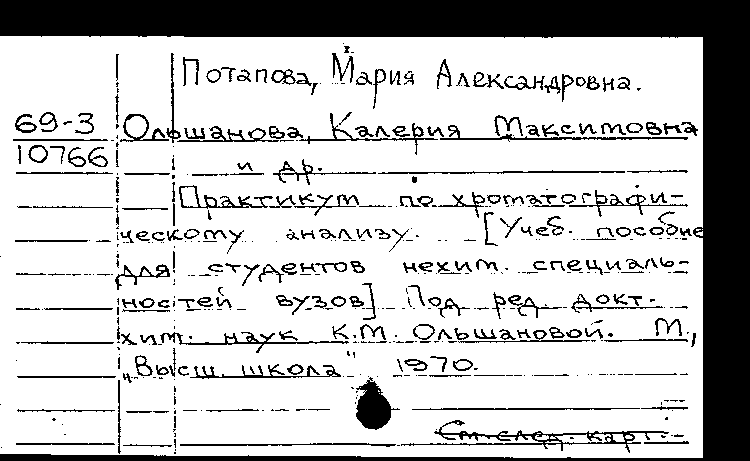 Потапова, Мария Александровна.
69-3 Ольшанова, Калерия Максимовна
10766 и др.
Практикум по хроматографи-
ческому анализу. [Учеб. пособие
для студентов нехим. специаль-
ностей вузов] Под ред. докт.
хим. наук К.М. Ольшановой. М.,
„Высш. школа" 1970.
См. след. карт.-